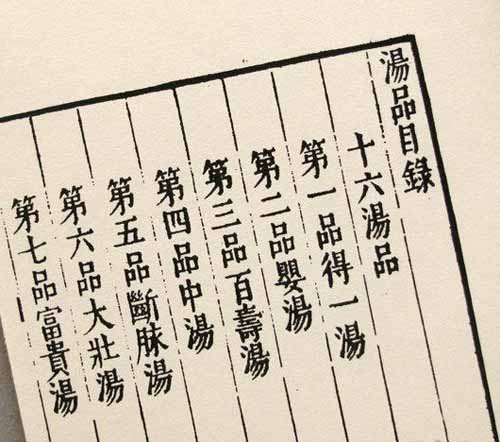 湯品目錄
十六湯品
第一品得一湯
第二品嬰湯
第三品百壽湯
第四品中湯
第五品斷脉湯
第六品大壯湯
第七品富貴湯